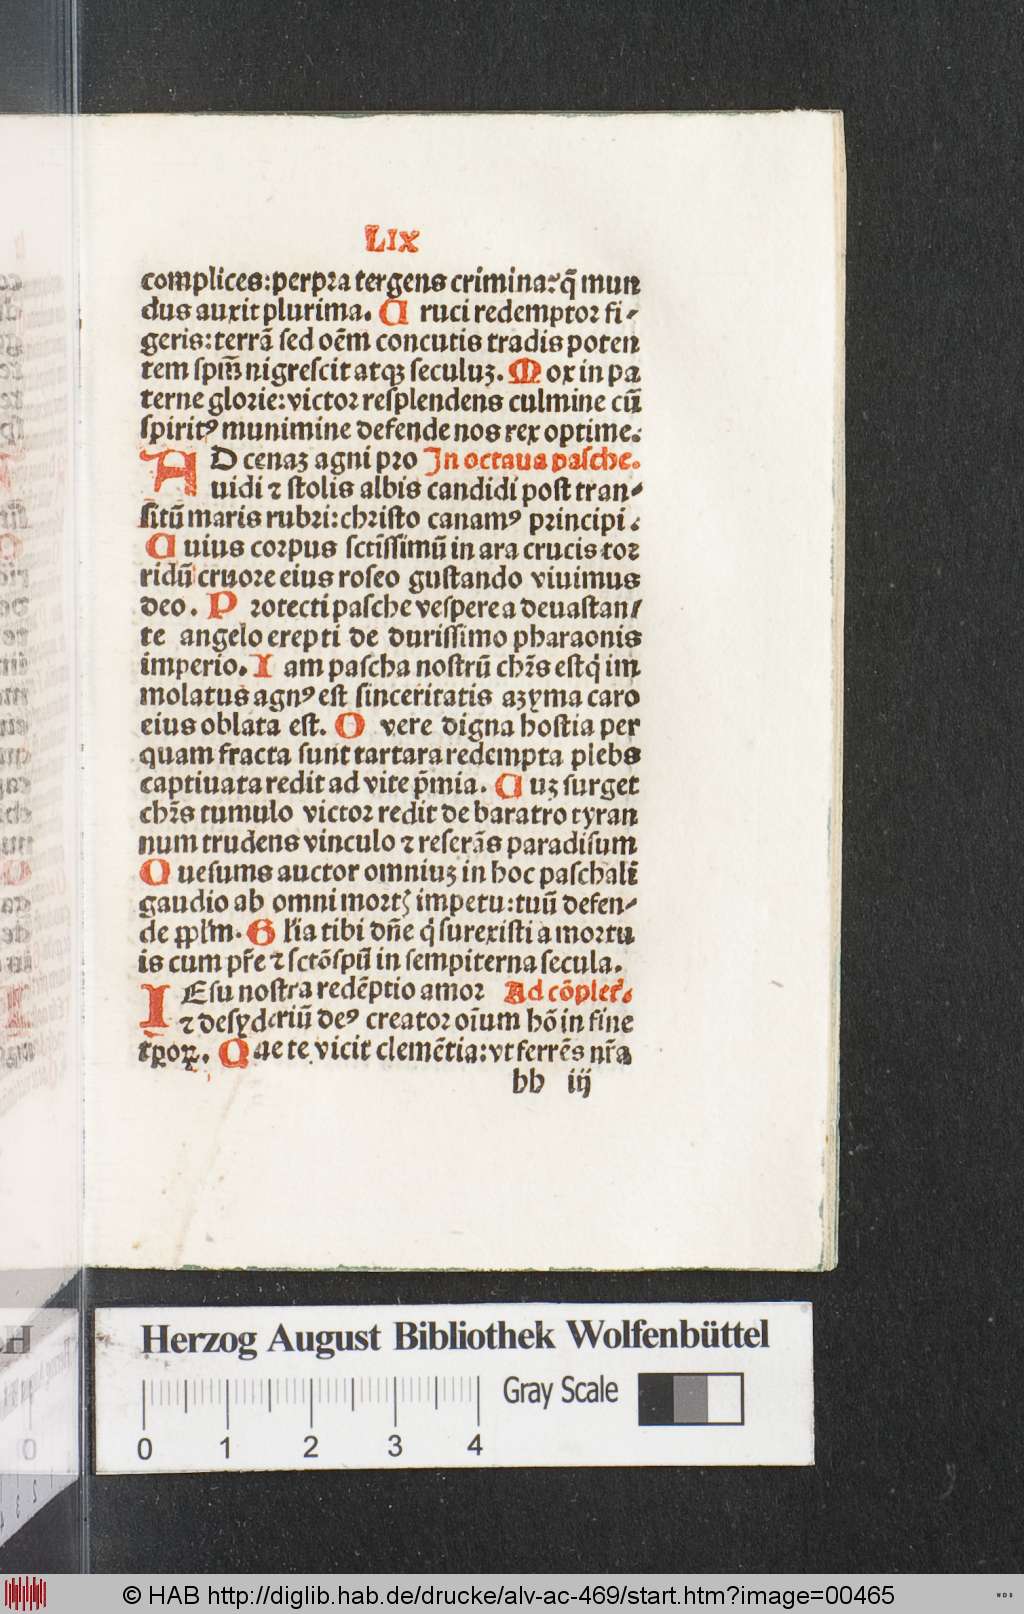 LIX
complices:perpꝛa tergens criminaꝛq̃ mun
dus auxit plurima. C ruci redemptoꝛ fi⸗
geris:terrã sed oẽm concutis tradis poten
tem spm̃ nigrescit atqꝫ seculuꝫ. M ox in pa
terne gloꝛie:victoꝛ resplendens culmine cũ
spiritꝰ munimine defende nos rex optime.
A D cenaꝫ agni pꝛo In octaua pasche.
uidi ⁊ stolis albis candidi post tran⸗
situ̅ maris rubꝛi:chꝛisto canamꝰ pꝛincipi.
C uius coꝛpus sctissimũ in ara crucis toꝛ
ridũ cruoꝛe eius roseo gustando viuimus
deo. P ꝛotecti pasche vespere a deuastan/
te angelo erepti de durissimo pharaonis
imperio. I am pascha nostrũ chꝛ̃s est q̇ im
molatus agnꝰ est sinceritatis aꝫyma caro
eius oblata est. O vere digna hostia per
quam fracta sunt tartara redempta plebs
captiuata redit ad vite p̃mia. C uꝫ surget
chꝛ̃s tumulo victoꝛ redit de baratro tyran
num trudens vinculo ⁊ reserãs paradisum
Q uesums auctor omniuꝫ in hoc paschali
gaudio ab omni moꝛtꝭ impetu:tuũ defen⸗
de ppl'm. G l'ia tibi dñe q̇ surexisti a moꝛtu
is cum pr̃e ⁊ sctõ spũ in sempiterna secula.
I Esu nostra redẽptio amoꝛ Ad cõplet'.
⁊ desyderiũ deꝰ creatoꝛ oĩum hõ in fine
tꝑoꝝ. Q ae te vicit clemẽtia:vt ferrẽs nr̃a
bb iij
Herzog August Bibliothek Wolfenbüttel
Gray Scale
0 1 2 3 4
© HAB http://diglib.hab.de/drucke/alv-ac-469/start.htm?image=00465